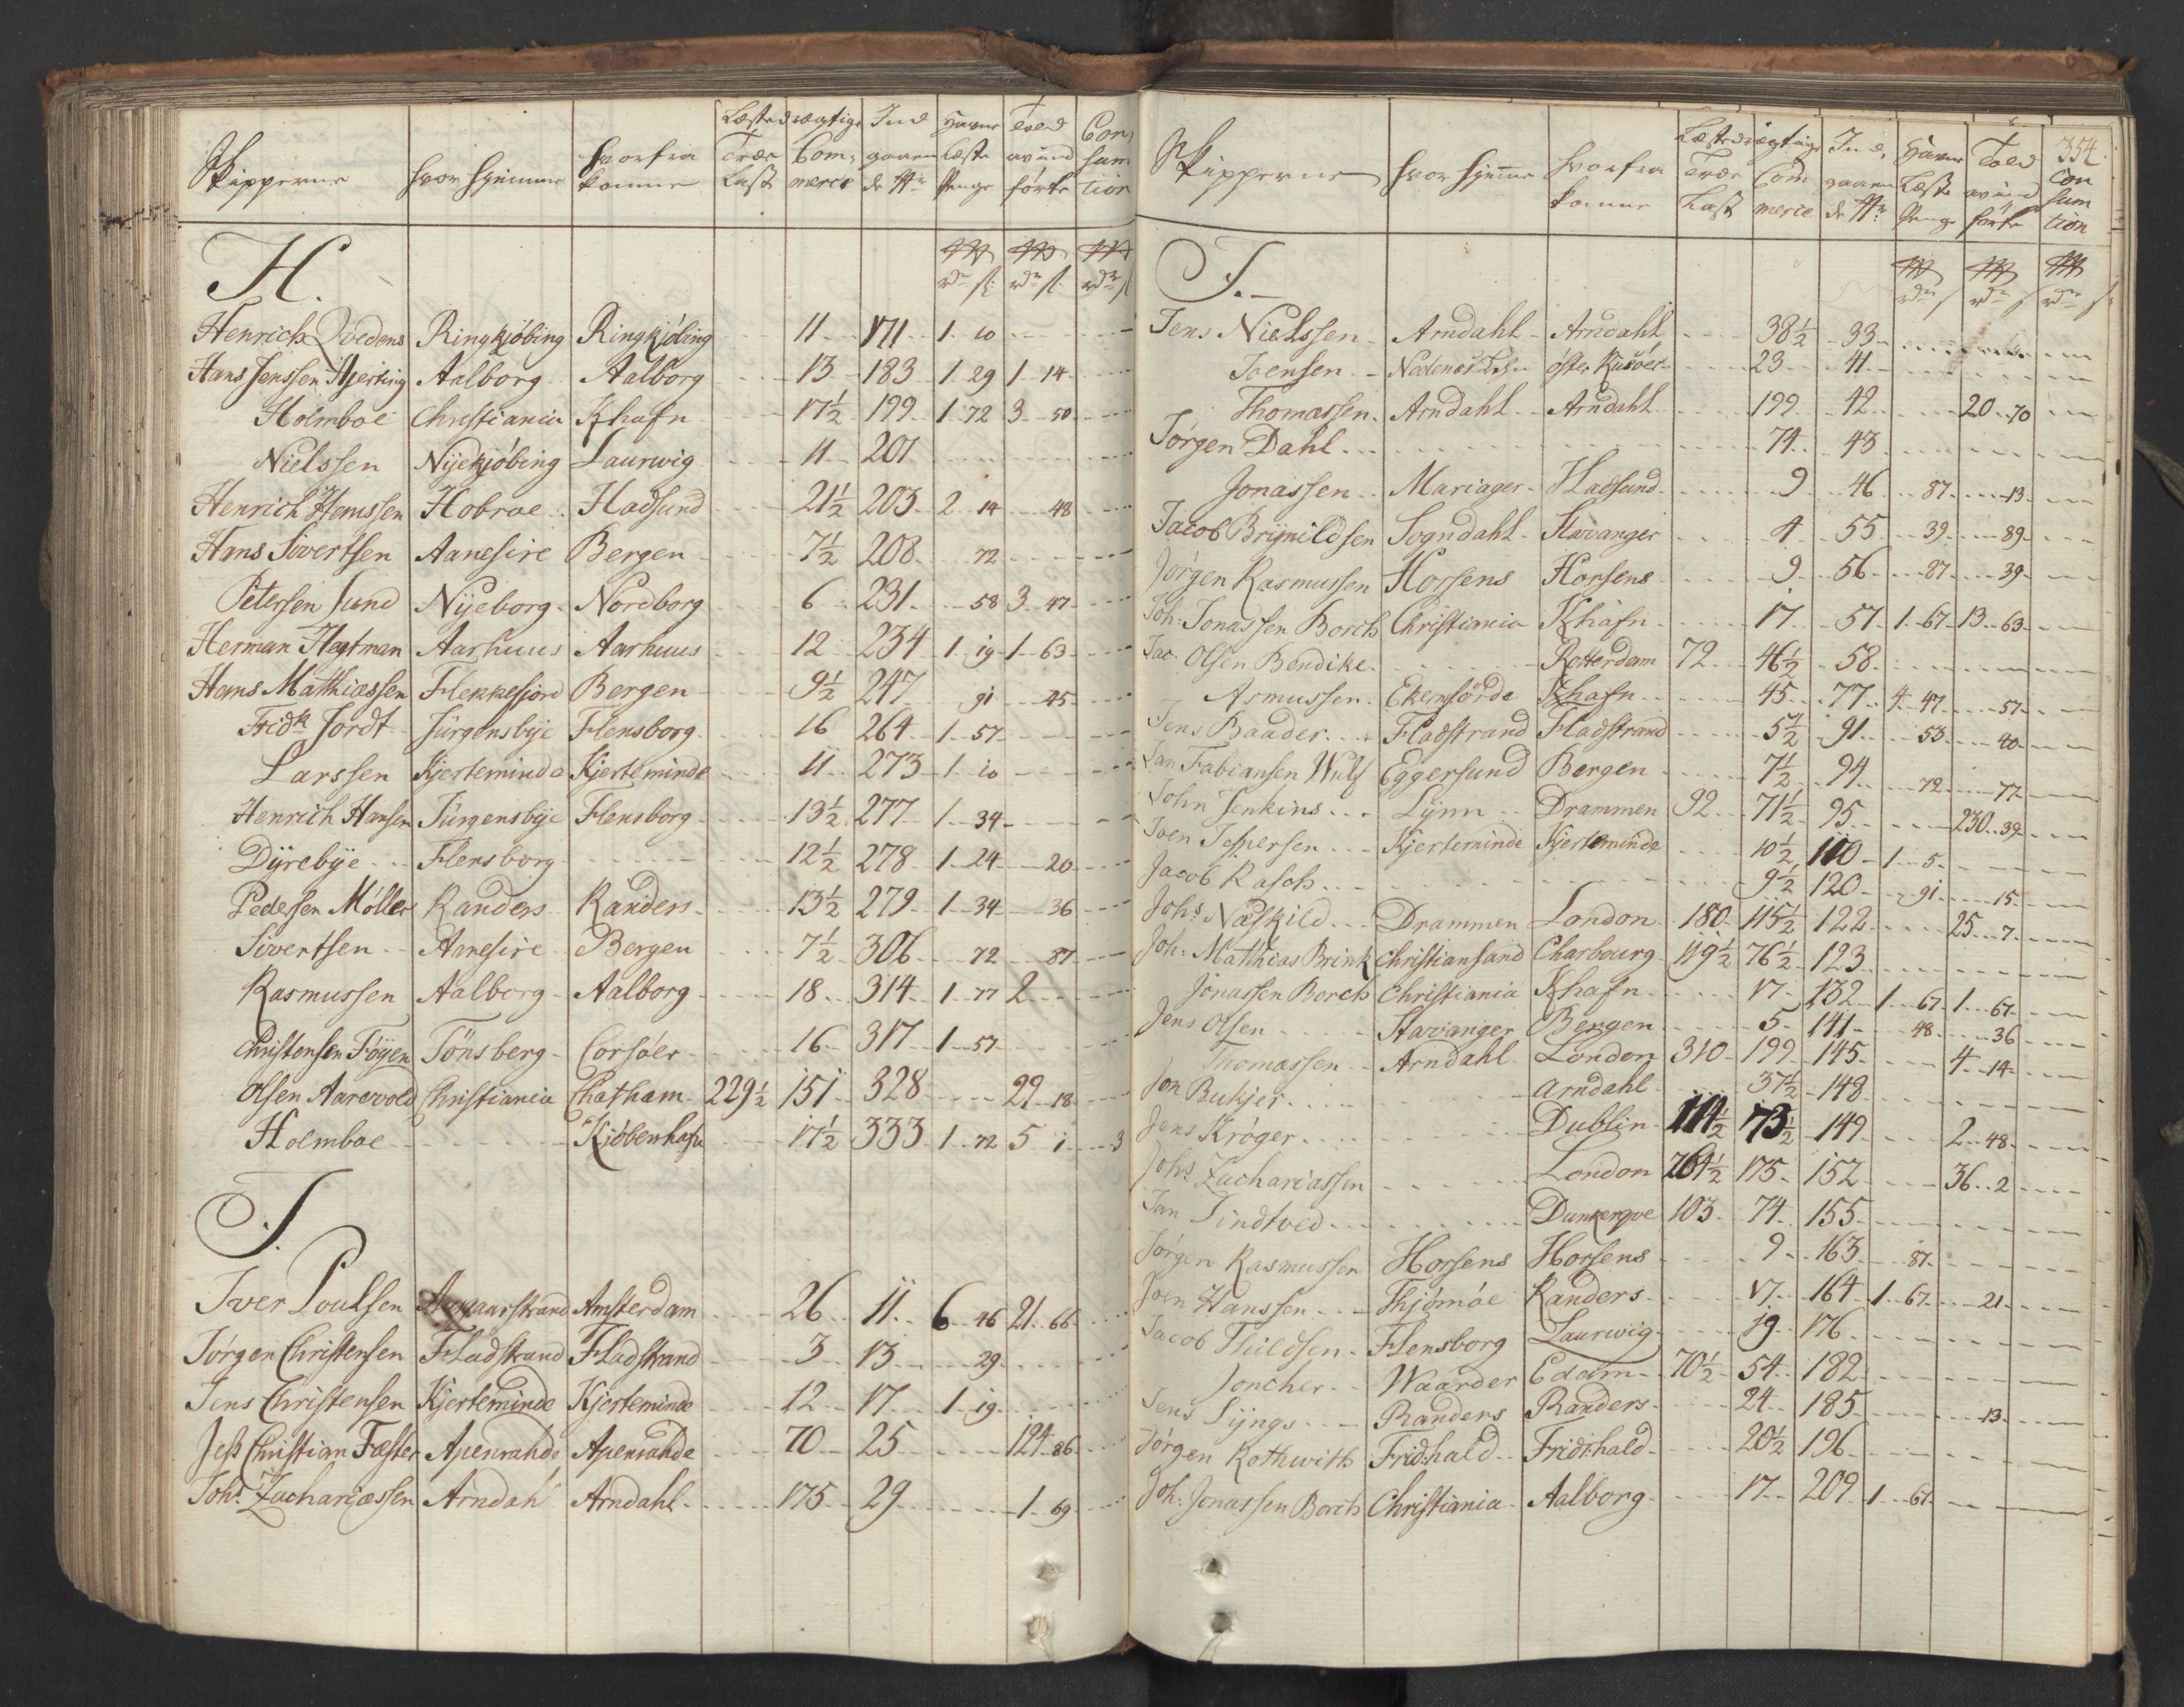 Skipperne | hvor hjemme | hvorfra komme | Læstedrægtige Træe Læst | Com- merce | Ind gaaen de No | Havne Læste Penge | Told av ind førte | Con sum tion
H.
rdr ß | rdr ß | rdr ß
Henrich Qvedens Ringkjöbing Ringkjöbing 11 171 1 10
Hans Jenssen Hjerting Aalborg Aalborg 13 183 1 29 1 14
Holmboe Christiania Khafn 17½ 199 1 72 3 50
Nielssen Nyekjöbing Laurwig 11 201
Henrich Hemssen Hobroe Hadsund 21½ 203 2 14 48
Hans Sivertsen Aanesire Bergen 7½ 208 72
Petersen Jund Nyeborg Nordborg 6 231 58 3 47
Herman Hagtman Aarhuus Aarhuus 12 234 1 19 1 63
Hans Mathiassen Flekkefjord Bergen 9½ 247 91 45
Fridk Jordt Jürgensbye Flensborg 16 264 1 57
Larssen Kjerteminde Kjerteminde 11 273 1 10
Henrich Hansen Jürgensbye Flensborg 13½ 277 1 34
Dyrebye Flensborg 12½ 278 1 24 20
Pedersen Möller Randers Randers 13½ 279 1 34 36
Sivertsen Anesire Bergen 7½ 306 72 87
Rasmussen Aalborg Aalborg 18 314 1 77 2
Christensen Föyen Tönsberg Corsöer 16 317 1 57
Olsen Aarevold Christiania Chatham 229½ 151 328 29 18
Holmboe Kjöbenhafn 17½ 333 1 72 5 1 3
J.
Iver Poulsen Amsterdam 26 11 6 46 21 66
Jörgen Christensen Fladstrand Fladstrand 3 13 29
Jens Christensen Kjerteminde Kjerteminde 12 17 1 19
Jess Christian Fæster Apenrahde Apenrahde 70 25 124 86
Johs Zachariassen Arndahl Arndahl 175 29 1 69
354.
Skipperne | hvor hjemme | hvorfra komme | Læstedrægtige Træe Læst | Com merce | Ind gaaen de No | Havne Læste Penge | Told av ind førte | Con sum tion
J.
rdr ß | rdr ß | rdr ß
Jens Nielssen Arndahl Arndahl 38½ 33
Joensen Nedenes öster Riisöer 23 41
Thomassen Arndahl Arndahl 199 42 20 70
Jörgen Dahl 74 43
Jonassen Mariager Hadsund 9 46 87 13
Jacob Brynildsen Sogndahl Stavanger 4 55 39 89
Jörgen Rasmussen Horsens Horsens 9 56 87 39
Joh. Jonassen Borch Christiania Khafn 17 57 1 67 13 63
Jac. Olsen Bendike Rotterdam 72 46½ 58
Asmussen Ekernförde Khafn 45 77 4 47 57
Jens Baader Fladstrand Fladstrand 5½ 91 53 40
Jan Fabiansen Wulf Eggersund Bergen 7½ 94 72 77
John Jenkins Lynn Drammen 92 71½ 95 230 39
Joen Jespersen Kjerteminde Kjerteminde 10½ 110 1 5
Jacob Rasch 9½ 120 91 15
Johs Næskild Drammen London 180 115½ 122 25 7
Joh. Matthias Brink Christiansand Charbourg 119½ 76½ 123
Jonassen Borch Christiania Khafn 17 132 1 67 1 67
Jens Olsen Stavanger Bergen 5 141 48 36
Thomassen Arndahl London 310 199 145 4 14
Jon Bukjer Arndahl 37½ 148
Jens Kröger Dublin 114½ 73½ 149 2 48
Johs Zachariassen London 264½ 175 152 36 2
Jan Tindtved Dunkerqve 103 74 155
Jörgen Rasmussen Horsens Horsens 9 163 87
Joen Hanssen Thjömöe Randers 17 164 1 67 21
Jacob Thildsen Flensborg Laurwig 19 176
Joncher Waarder Edam 70½ 54 182
Jens Lyngs Randers Randers 24 185 13
Jörgen Rothwith Fridhald Fridhald 20½ 196
Joh. Jonassen Borch Christiania Aalborg 17 209 1 67